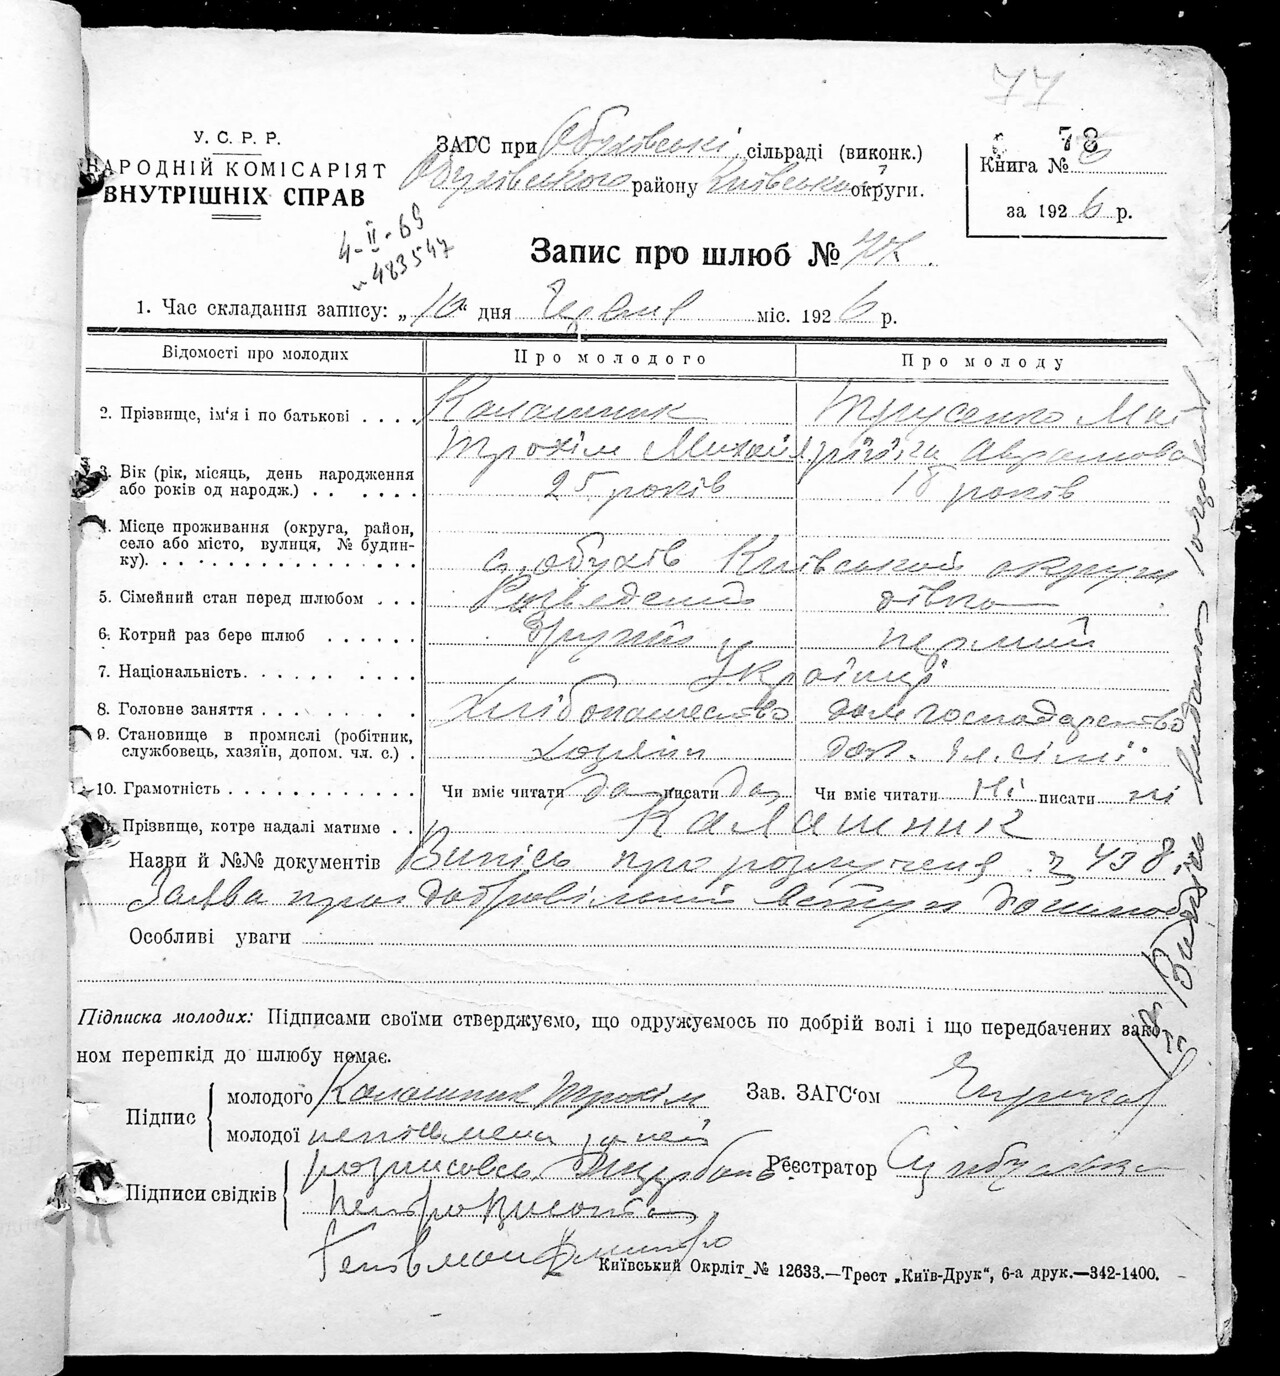 77
У. С. Р. Р.
НАРОДНІЙ КОМІСАРІЯТ
ВНУТРІШНІХ СПРАВ
ЗАГС при Обухівські сільраді (виконк.)
Обухівського району Київської округи.
78
Книга №
за 1926 р.
4-II-69
483547
Запис про шлюб № 77.
1. Час складання запису: „10“ дня Червня міс. 1926 р.
Відомості про молодих
Про молодого
Про молоду
2. Прізвище, ім‘я і по батькові . . . .
Калашник
Трохім Михайл
Трусенко Мот
Аврамова
3. Вік (рік, місяць, день народження
або років од народж.) . . . . . .
25 років
18 років
4. Місце проживання (округа, район,
село або місто, вулиця, № будин-
ку). . . . . . . . . . . . . . . . .
с. Обухів Київської округи
5. Сімейний стан перед шлюбом . . .
Розведений
дівка
6. Котрий раз бере шлюб . . . . . .
другий
первий
7. Національність. . . . . . . . . .
Українці
8. Головне заняття . . . . . . . . .
Хлібопашество
дом господарство
9. Становище в промислі (робітник,
службовець, хазяїн, допом. чл. с.) .
хозяїн
доп. чл. сімї
10. Грамотність . . . . . . . . . . . .
Чи вміє читати да писати да
Чи вміє читати Ні писати ні
Прізвище, котре надалі матиме . .
Калашник
Назви й №№ документів Випісь про розлучення № 438.
Заява про добровільний вступ
Особливі уваги
Підписка молодих: Підписами своїми стверджуємо, що одружуємось по добрій волі і що передбачених зако-
ном перешкід до шлюбу немає.
Підпис
молодого Калашник Трохім
молодої неписьмена за неї
розписовсь
Підписи свідків
Петро
Зав. ЗАГС‘ом
Реєстратор
Київський Окрліт № 12633.—Трест „Київ-Друк“, 6-а друк.—342-1400.